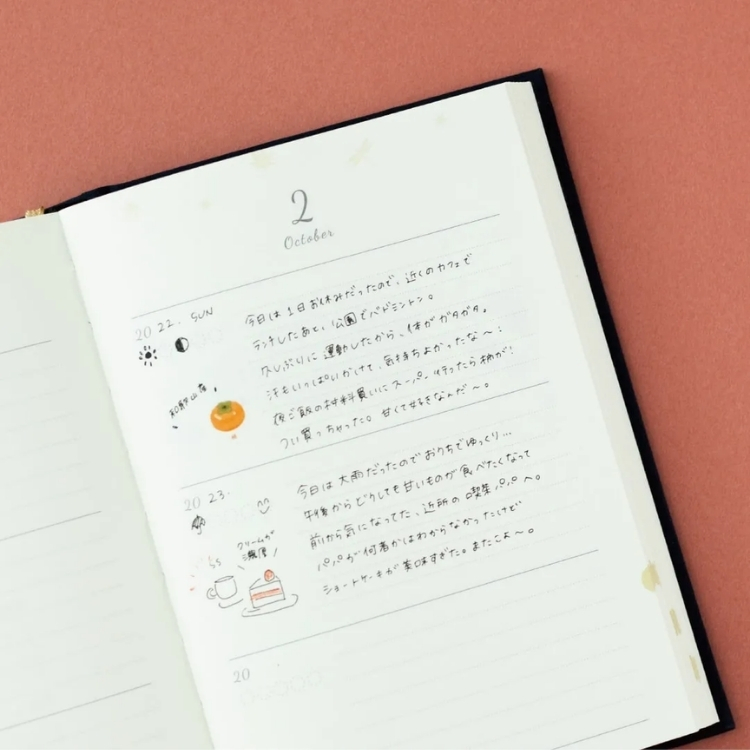 2
October
2022. SUN
今日は1日お休みだったので、近くのカフェで
ランチしたあと、公園でバドミントン。
久しぶりに運動したから、体がガタガタ。
汗もいっぱいかけて、気持ちよかったな〜!
夜ご飯の材料買いにスーパー行ったら柿が!
つい買っちゃった。甘くて好きなんだ〜。
和歌山産
2023.
今日は大雨だったのでおうちでゆっくり…
午後からどうしても甘いものが食べたくなって
前から気になってた、近所の喫茶パパへ。
パパが何者かはわからなかったけど
ショートケーキが美味すぎた。またこよ〜。
クリームが
濃厚
20